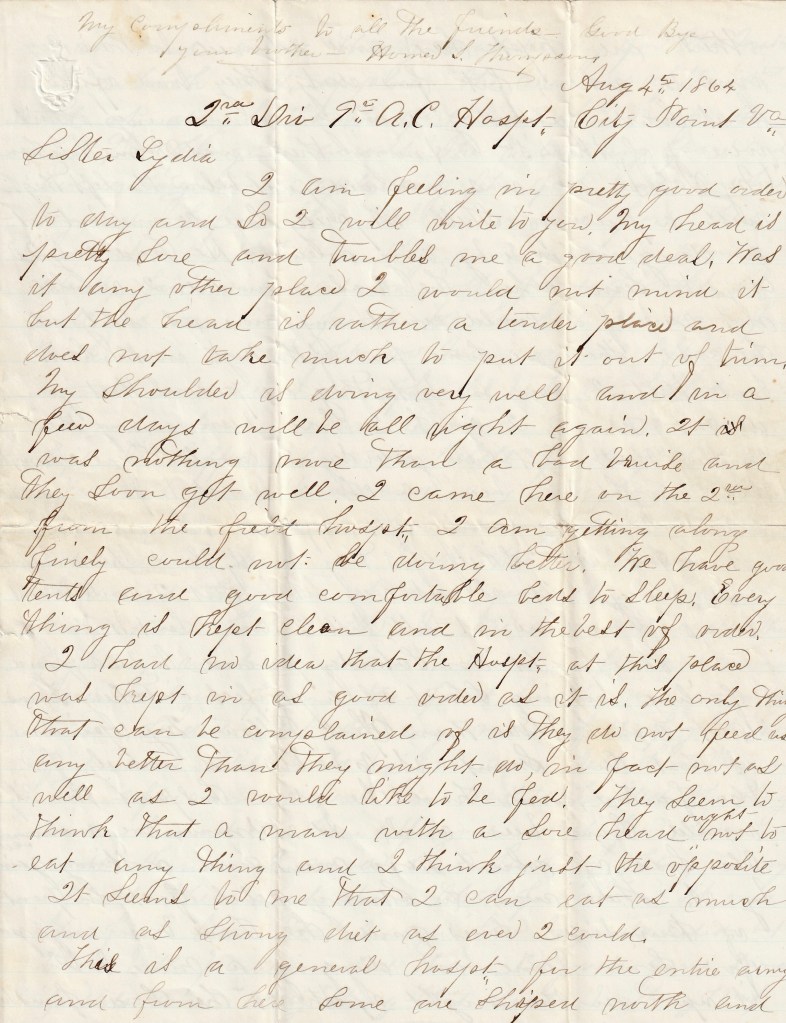 My compliments to all the friends - Good Bye
your brother - Homer S. Thompson
Aug 4th 1864
2nd Div 9th A.C. Hospt. City Point Va
Sister Lydia
I am feeling in pretty good order
to day and so I will write to you. My head is
pretty sore and troubles me a good deal. Was
it any other place I would not mind it
but the head is rather a tender place and
does not take much to put it out of trim.
My shoulder is doing very well and in a
few days will be all right again. It is
was nothing more than a bad bruise and
they soon get well. I came here on the 2nd
from the field hospt. I am getting along
finely could not be doing better. We have good
tents and good comfortable beds to sleep. Every
thing is kept clean and in the best of order.
I had no idea that the Hospt. at this place
was kept in as good order as it is. The only thin
that can be complained of is they do not feed us
any better than they might do, in fact not as
well as I would like to be fed. They seem to
think that a man with a sore head ought not to
eat any thing and I think just the opposite
It seems to me that I can eat as much
and as strong diet as ever I could.
This is a general hospt. for the entire army
and from here some are shiped north and